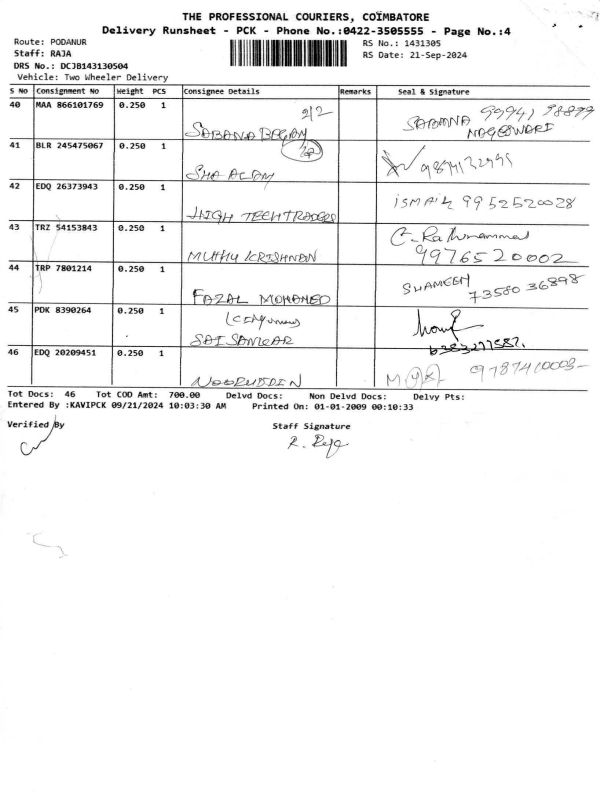 THE PROFESSIONAL COURIERS, COIMBATORE
Delivery Runsheet - PCK - Phone No.:0422-3505555 - Page No.:4
Route: PODANUR
Staff: RAJA
DRS No.: DCJB143130504
Vehicle: Two Wheeler Delivery
RS No.: 1431305
RS Date: 21-Sep-2024
S No Consignment No Weight PCS Consignee Details Remarks Seal & Signature
40 MAA 866101769 0.250 1 2/2 SABANA BEGAM SABANA 99941 98899 NAGESWARI
41 BLR 245475067 0.250 1
42 EDQ 26373943 0.250 1 HIGH TECH TRADERS ISMAIL 9952520028
43 TRZ 54153843 0.250 1 MUTHU KRISHNAN 9976520002
44 TRP 7801214 0.250 1 FAZAL MOHAMED SHAMEEM 73580 36898
45 PDK 8390264 0.250 1 SAI SANKAR 6383277587
46 EDQ 20209451 0.250 1 NOORUDDIN 9787410003
Tot Docs: 46 Tot COD Amt: 700.00 Delvd Docs: Non Delvd Docs: Delvy Pts:
Entered By :KAVIPCK 09/21/2024 10:03:30 AM Printed On: 01-01-2009 00:10:33
Verified By Staff Signature